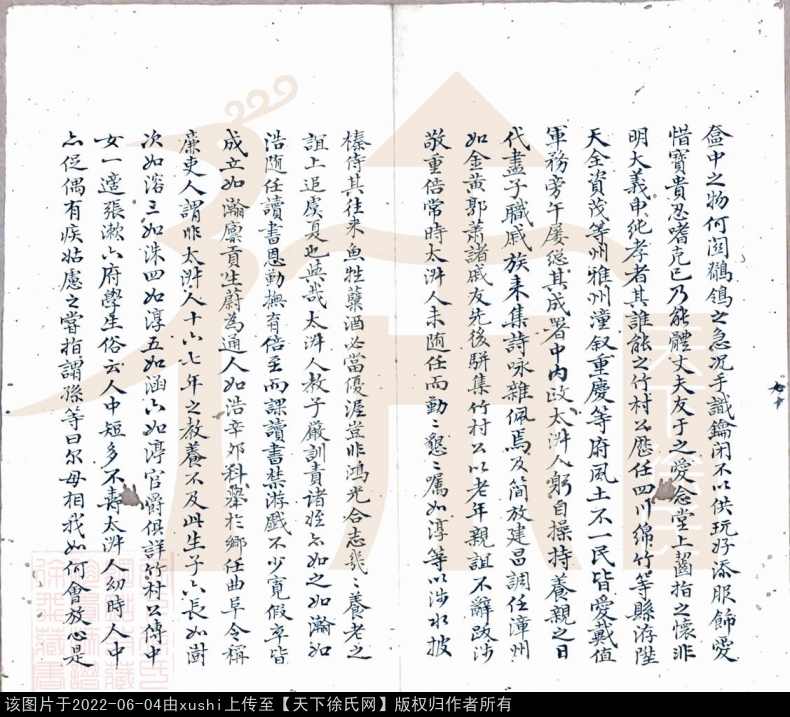 奩中之物何図鶺鴒之急况手識鑰闭不以供玩好添服飾愛
惜寳貴忍嗜克己乃能體丈夫友于之愛念堂上齧指之懷非
明大義申純孝者其誰能之竹村公歷任四川綿竹等縣游陞
天全資茂等州雅州潼叙重慶等府風土不一民皆愛戴值
軍務旁午屡
其成署中内政太淑人躬自操持養親之日
代盡子職戚族来集詩咏雜佩焉及簡放建昌調任漳州
如金黄郭萧諸戚友先後駢集竹村公以老年親誼不辭跋涉
敬重倍常時太淑人未随任而勤〻懇〻嘱如淳等以涉水披
榛侍其往来魚牲蘗酒必當優渥豈非鴻光合志㡬〻養老之
誼上追虞夏也與哉太淑人教子嚴訓責诸姪亦如之如瀚如
浩随任讀書恩勤撫育倍至而課讀書禁游戲不少寛假卒皆
成立如瀚廪貢生蔚為通人如浩辛夘科舉於鄉任曲阜令稱
廉吏人謂非太淑人十六七年之教養不及此生子六長如澍
次如溶三如洙四如淳五如涵六如渟官爵俱詳竹村公傳中
女一適張漱六府學生俗云人中短多不壽太淑人幼時人中
亦促偶有疾姑慮之嘗指謂孫等曰尔母相我如何會放心是
该图片于2022-06-04由xushi上传至【天下徐氏网】版权归作者所有